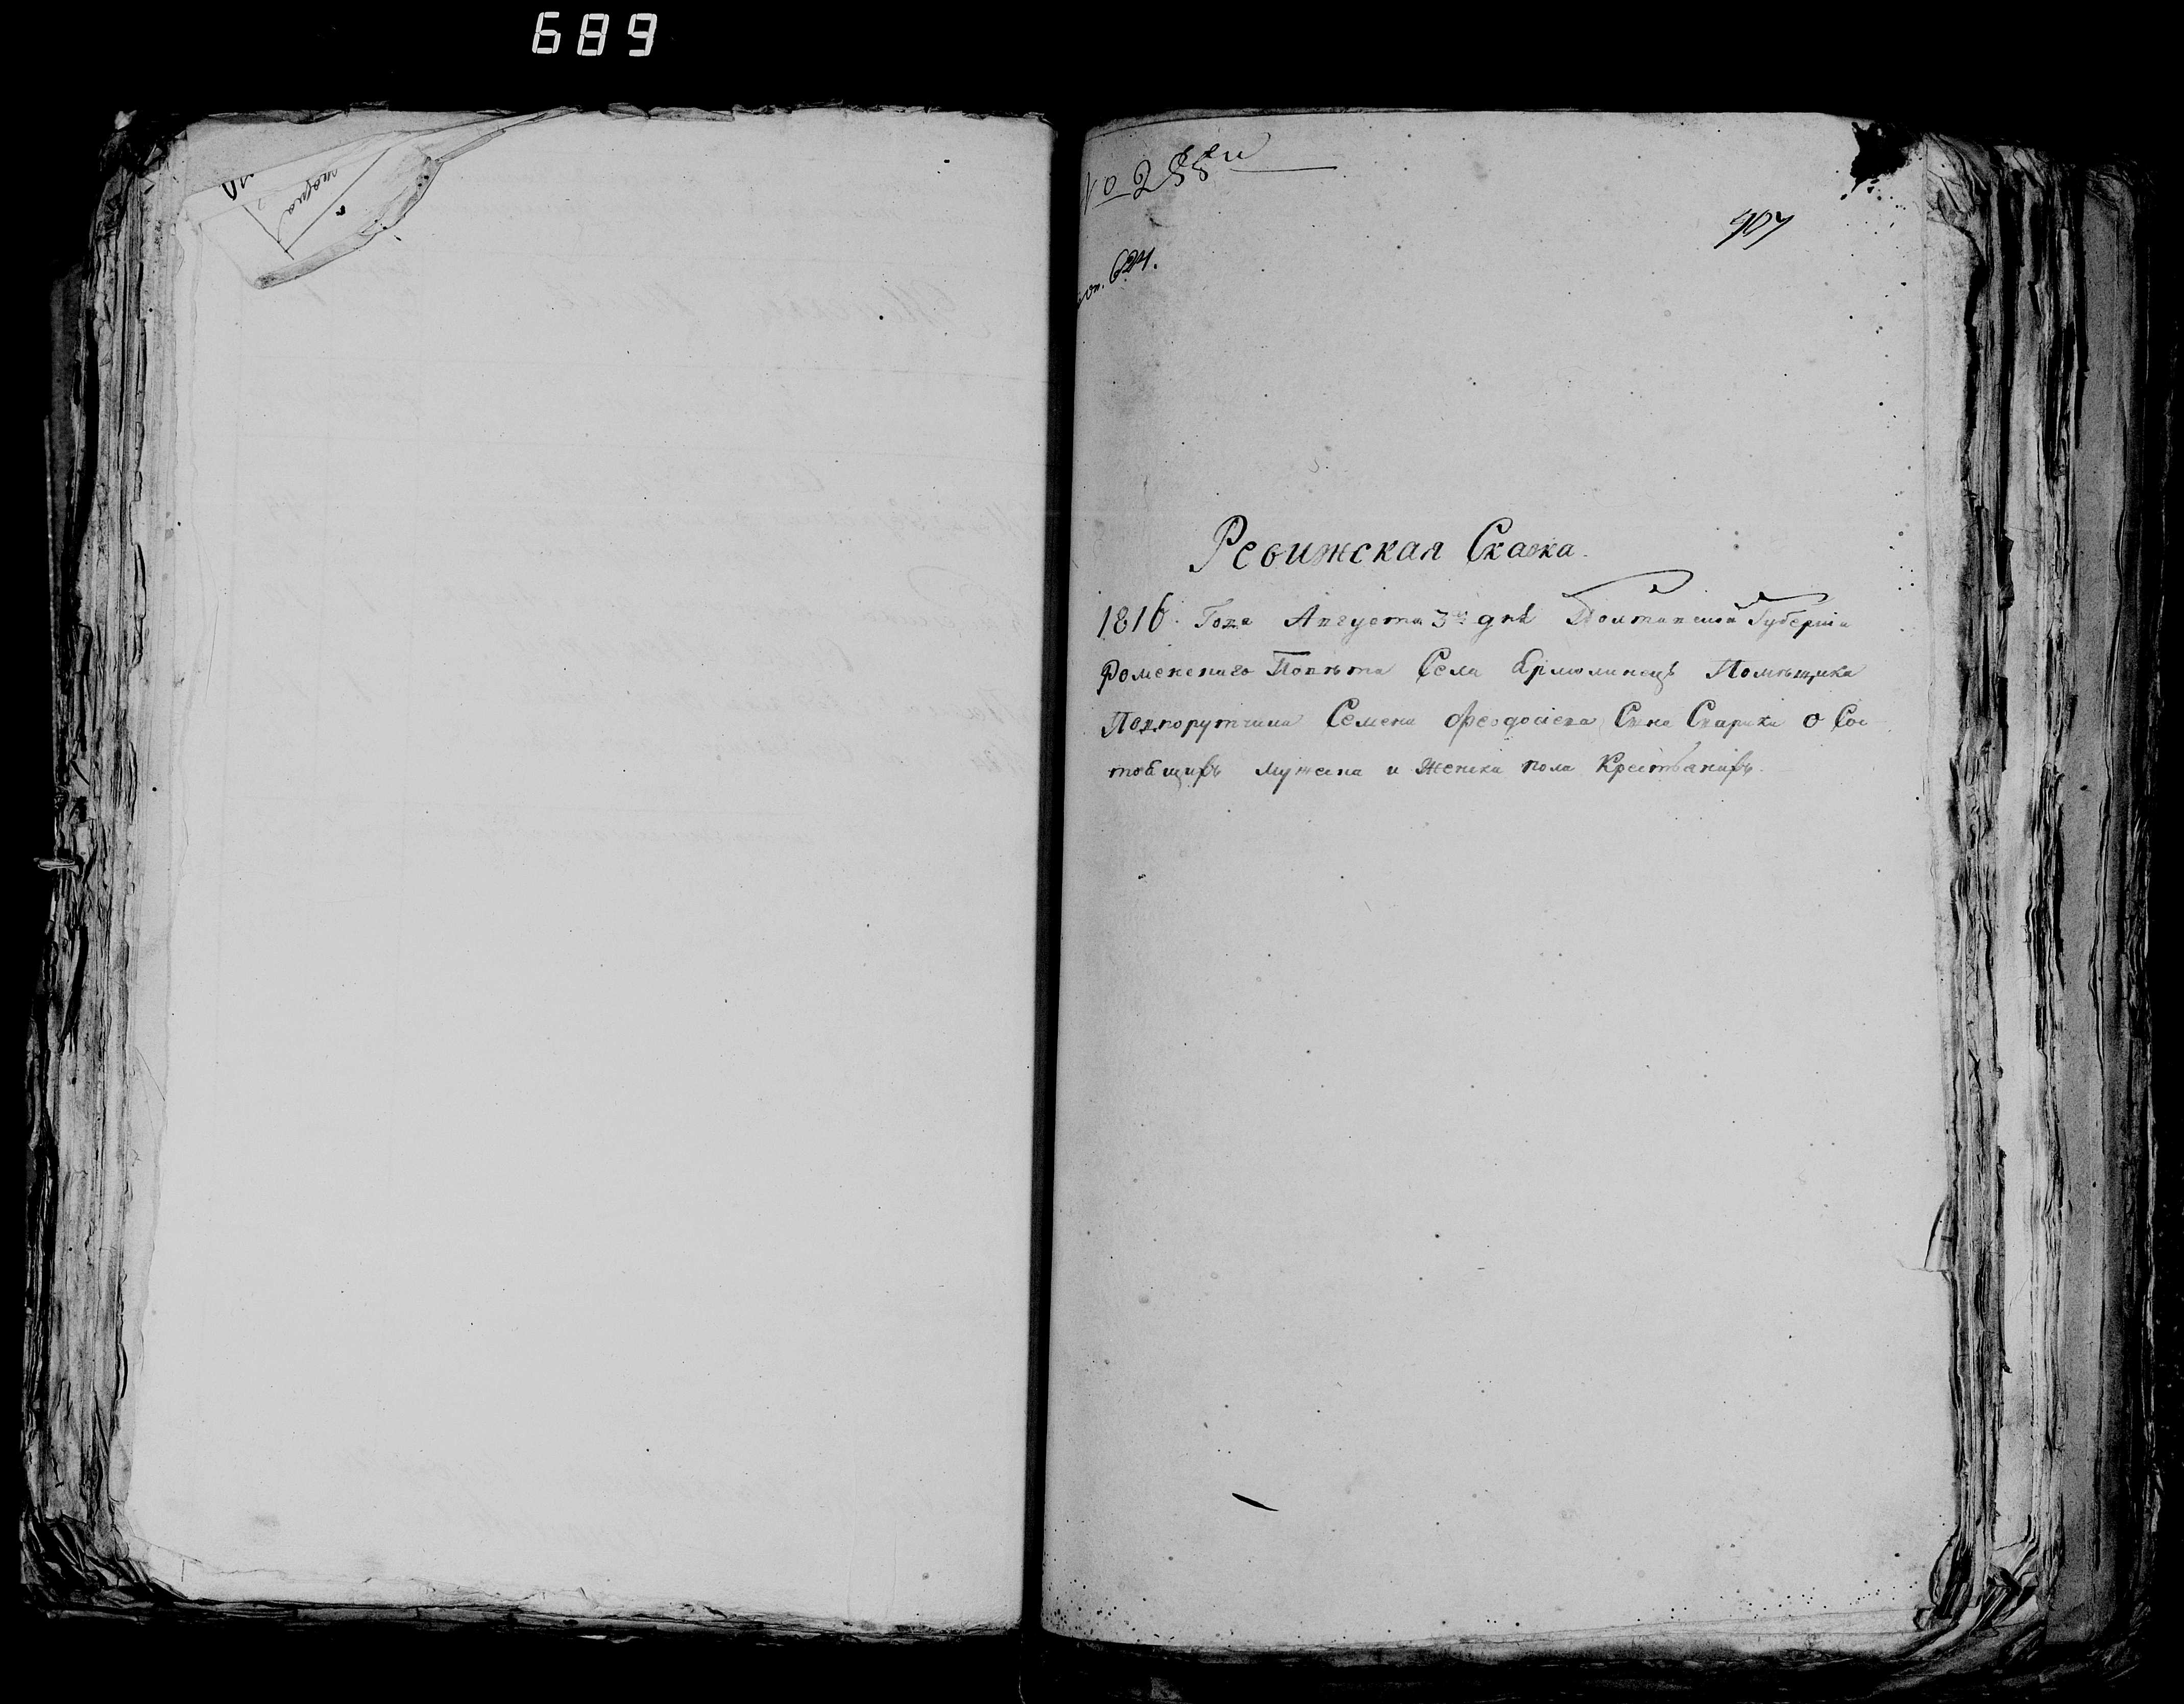 689
№ 288й
907
624.
Ревижская Сказка.
1816. Года Августа 3го днѣ Полтавской Губернiи
Роменскаго Повѣта Села Ярмолинецъ Помѣщика
Подпорутчика Семена Феодосіева Сына Скарики о Сос
тоящихъ мужеска и Женска пола Крестьянахъ.